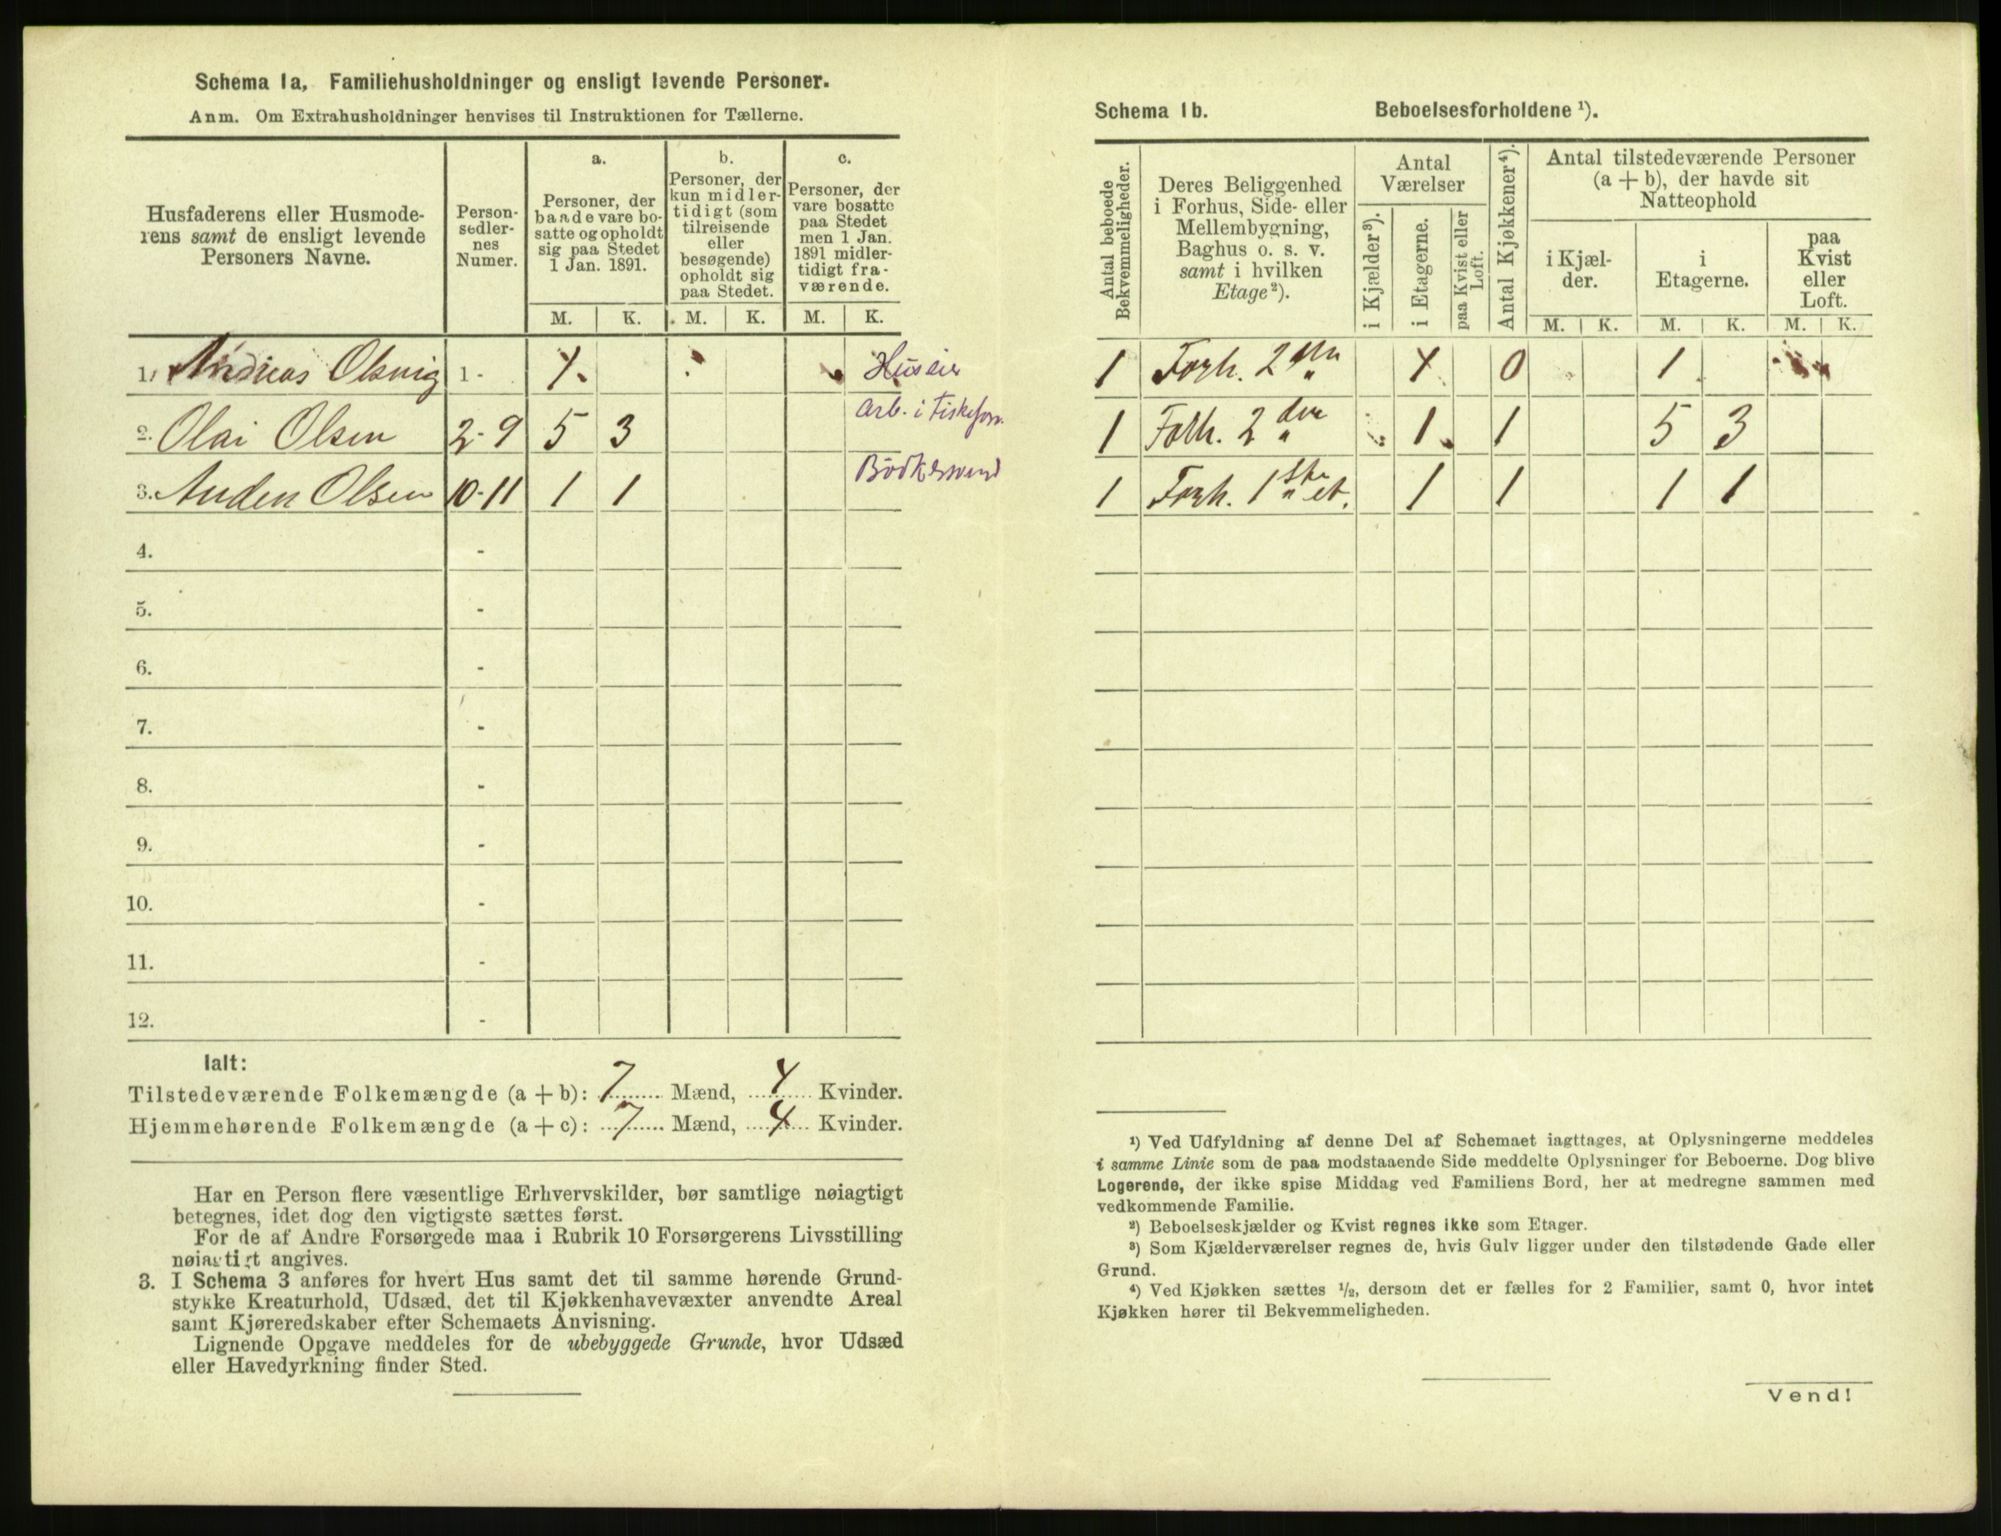 Schema 1a, Familiehusholdninger og ensligt levende Personer.
Anm. Om Extrahusholdninger henvises til Instruktionen for Tællerne.
Husfaderens eller Husmoderens samt de ensligt levende Personers Navne.
Personsedlernes Numer.
a.
Personer, der baade vare bosatte og opholdt sig paa Stedet 1 Jan. 1891.
b.
Personer, der kun midlertidigt (som tilreisende eller besøgende) opholdt sig paa Stedet.
c.
Personer, der vare bosatte paa Stedet men 1 Jan. 1891 midlertidigt fraværende.
M. K. M. K. M. K.
1. Andreas Olsvig 1 - Huseier
2. Olai Olsen 2-9 5 3 Arb. i Fiskeforr.
3. Anden Olsen 10-11 1 1 Bödkersvend
4. -
5. -
6. -
7. -
8. -
9. -
10. -
11. -
12. -
Ialt:
Tilstedeværende Folkemængde (a + b): 7 Mænd, 4 Kvinder.
Hjemmehørende Folkemængde (a + c): 7 Mænd, 4 Kvinder.
Har en Person flere væsentlige Erhvervskilder, bør samtlige nøiagtigt
betegnes, idet dog den vigtigste sættes først.
For de af Andre Forsørgede maa i Rubrik 10 Forsørgerens Livsstilling
nøiagtigt angives.
3. I Schema 3 anføres for hvert Hus samt det til samme hørende Grund-
stykke Kreaturhold, Udsæd, det til Kjøkkenhavevæxter anvendte Areal
samt Kjøreredskaber efter Schemaets Anvisning.
Lignende Opgave meddeles for de ubebyggede Grunde, hvor Udsæd
eller Havedyrkning finder Sted.
Schema 1b. Beboelsesforholdene ¹).
Antal beboede Bekvemmeligheder.
Deres Beliggenhed i Forhus, Side- eller Mellembygning, Baghus o. s. v. samt i hvilken Etage²).
Antal Værelser
i Kjælder³).
i Etagerne.
paa Kvist eller Loft.
Antal Kjøkkener⁴).
Antal tilstedeværende Personer (a + b), der havde sit Natteophold
i Kjælder.
i Etagerne.
paa Kvist eller Loft.
M. K. M. K. M. K.
1 Forh. 2den 4 0 1
1 Foth. 2den 1 1 5 3
1 Forh. 1ste et. 1 1 1 1
¹) Ved Udfyldning af denne Del af Schemaet iagttages, at Oplysningerne meddeles
i samme Linie som de paa modstaaende Side meddelte Oplysninger for Beboerne. Dog blive
Logerende, der ikke spise Middag ved Familiens Bord, her at medregne sammen med
vedkommende Familie.
²) Beboelseskjælder og Kvist regnes ikke som Etager.
³) Som Kjælderværelser regnes de, hvis Gulv ligger under den tilstødende Gade eller
Grund.
⁴) Ved Kjøkken sættes ½, dersom det er fælles for 2 Familier, samt 0, hvor intet
Kjøkken hører til Bekvemmeligheden.
Vend!